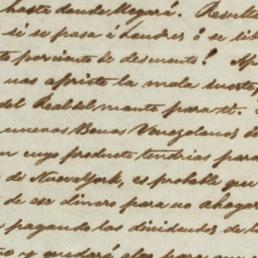 hasta donde llegará. Result
si se pasa á Londres ó se lib
te por ciento de descuento! Ap
nas apriete la mala suerte,
del Real del monte para ti.
nuevos Bonos Venezolanos d
n cuyo producto tendrias para
de Nueva York, es probable que
de ese dinero para no ahogar
pagando los dividendos de l
y quedará algo para que